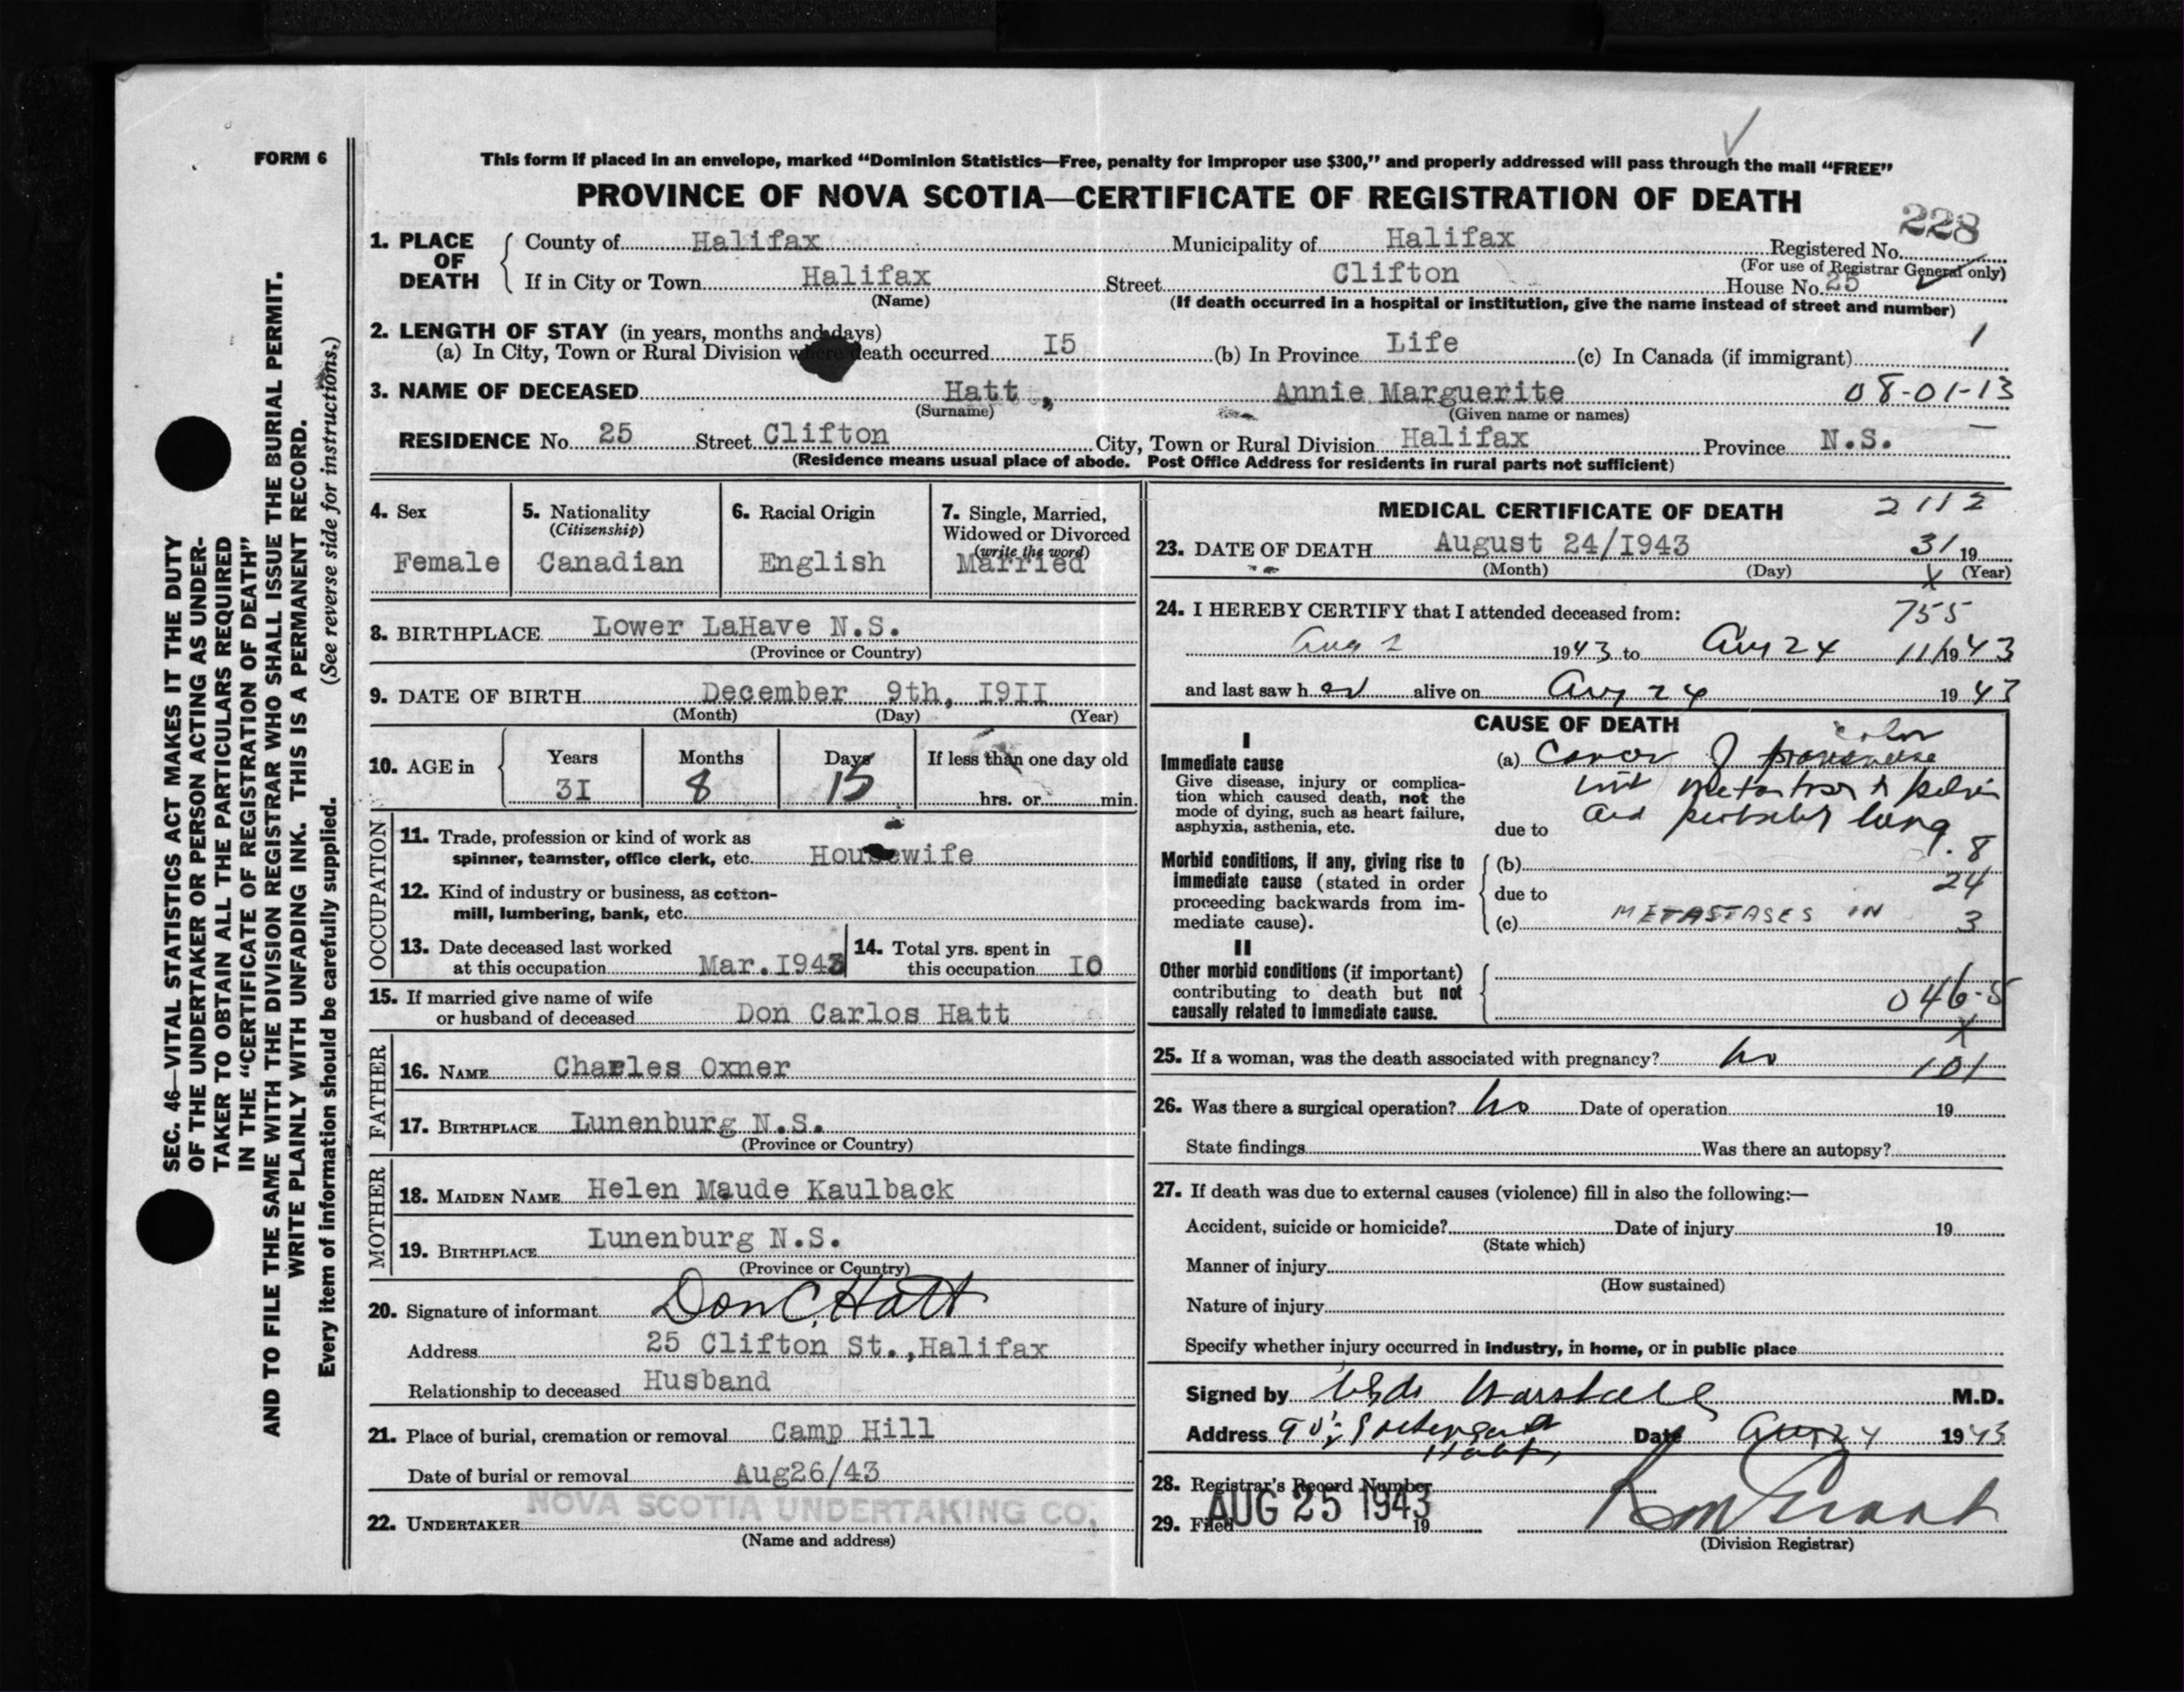 FORM 6
This form if placed in an envelope, marked “Dominion Statistics—Free, penalty for improper use $300,” and properly addressed will pass through the mail “FREE”
PROVINCE OF NOVA SCOTIA—CERTIFICATE OF REGISTRATION OF DEATH
228
1. PLACE OF DEATH
County of Halifax Municipality of Halifax Registered No.
(For use of Registrar General only)
If in City or Town Halifax Street Clifton House No. 25
(Name) (If death occurred in a hospital or institution, give the name instead of street and number)
2. LENGTH OF STAY (in years, months and days)
(a) In City, Town or Rural Division where death occurred I5 (b) In Province Life (c) In Canada (if immigrant) 1
3. NAME OF DECEASED Hatt, Annie Marguerite 08-01-13
(Surname) (Given name or names)
RESIDENCE No. 25 Street Clifton City, Town or Rural Division Halifax Province N.S.
(Residence means usual place of abode. Post Office Address for residents in rural parts not sufficient)
4. Sex
Female
5. Nationality
(Citizenship)
Canadian
6. Racial Origin
English
7. Single, Married,
Widowed or Divorced
(write the word)
Married
8. BIRTHPLACE Lower LaHave N.S.
(Province or Country)
9. DATE OF BIRTH December 9th, I9II
(Month) (Day) (Year)
10. AGE in
Years Months Days If less than one day old
3I 8 15 hrs. or min.
OCCUPATION
11. Trade, profession or kind of work as
spinner, teamster, office clerk, etc. Housewife
12. Kind of industry or business, as cotton-
mill, lumbering, bank, etc.
13. Date deceased last worked
at this occupation Mar. I943
14. Total yrs. spent in
this occupation I0
15. If married give name of wife
or husband of deceased Don Carlos Hatt
FATHER
16. NAME Charles Oxner
17. BIRTHPLACE Lunenburg N.S.
(Province or Country)
MOTHER
18. MAIDEN NAME Helen Maude Kaulback
19. BIRTHPLACE Lunenburg N.S.
(Province or Country)
20. Signature of informant Don C. Hatt
Address 25 Clifton St.,Halifax
Relationship to deceased Husband
21. Place of burial, cremation or removal Camp Hill
Date of burial or removal Aug26/43
NOVA SCOTIA UNDERTAKING CO.
22. UNDERTAKER
(Name and address)
MEDICAL CERTIFICATE OF DEATH 2112
23. DATE OF DEATH August 24/I943 31 19
(Month) (Day) (Year)
X
24. I HEREBY CERTIFY that I attended deceased from: 755
Aug 2 1943 to Aug 24 11/1943
and last saw her alive on Aug 24 1943
CAUSE OF DEATH
I
Immediate cause
Give disease, injury or complica-
tion which caused death, not the
mode of dying, such as heart failure,
asphyxia, asthenia, etc.
colon
(a) Cancer of transverse
with metastases to pelvis
due to and probably lung
8
Morbid conditions, if any, giving rise to
immediate cause (stated in order
proceeding backwards from im-
mediate cause).
(b)
24
due to
(c) METASTASES IN 3
II
Other morbid conditions (if important)
contributing to death but not
causally related to immediate cause.
046-5
X
25. If a woman, was the death associated with pregnancy? no 101
26. Was there a surgical operation? no Date of operation 19
State findings Was there an autopsy?
27. If death was due to external causes (violence) fill in also the following:—
Accident, suicide or homicide? Date of injury 19
(State which)
Manner of injury
(How sustained)
Nature of injury
Specify whether injury occurred in industry, in home, or in public place
Signed by M.D.
Address Date Aug 24 1943
28. Registrar's Record Number
AUG 25 1943
29. Filed 19
(Division Registrar)
SEC. 46—VITAL STATISTICS ACT MAKES IT THE DUTY
OF THE UNDERTAKER OR PERSON ACTING AS UNDER-
TAKER TO OBTAIN ALL THE PARTICULARS REQUIRED
IN THE “CERTIFICATE OF REGISTRATION OF DEATH”
AND TO FILE THE SAME WITH THE DIVISION REGISTRAR WHO SHALL ISSUE THE BURIAL PERMIT.
WRITE PLAINLY WITH UNFADING INK. THIS IS A PERMANENT RECORD.
Every item of information should be carefully supplied. (See reverse side for instructions.)